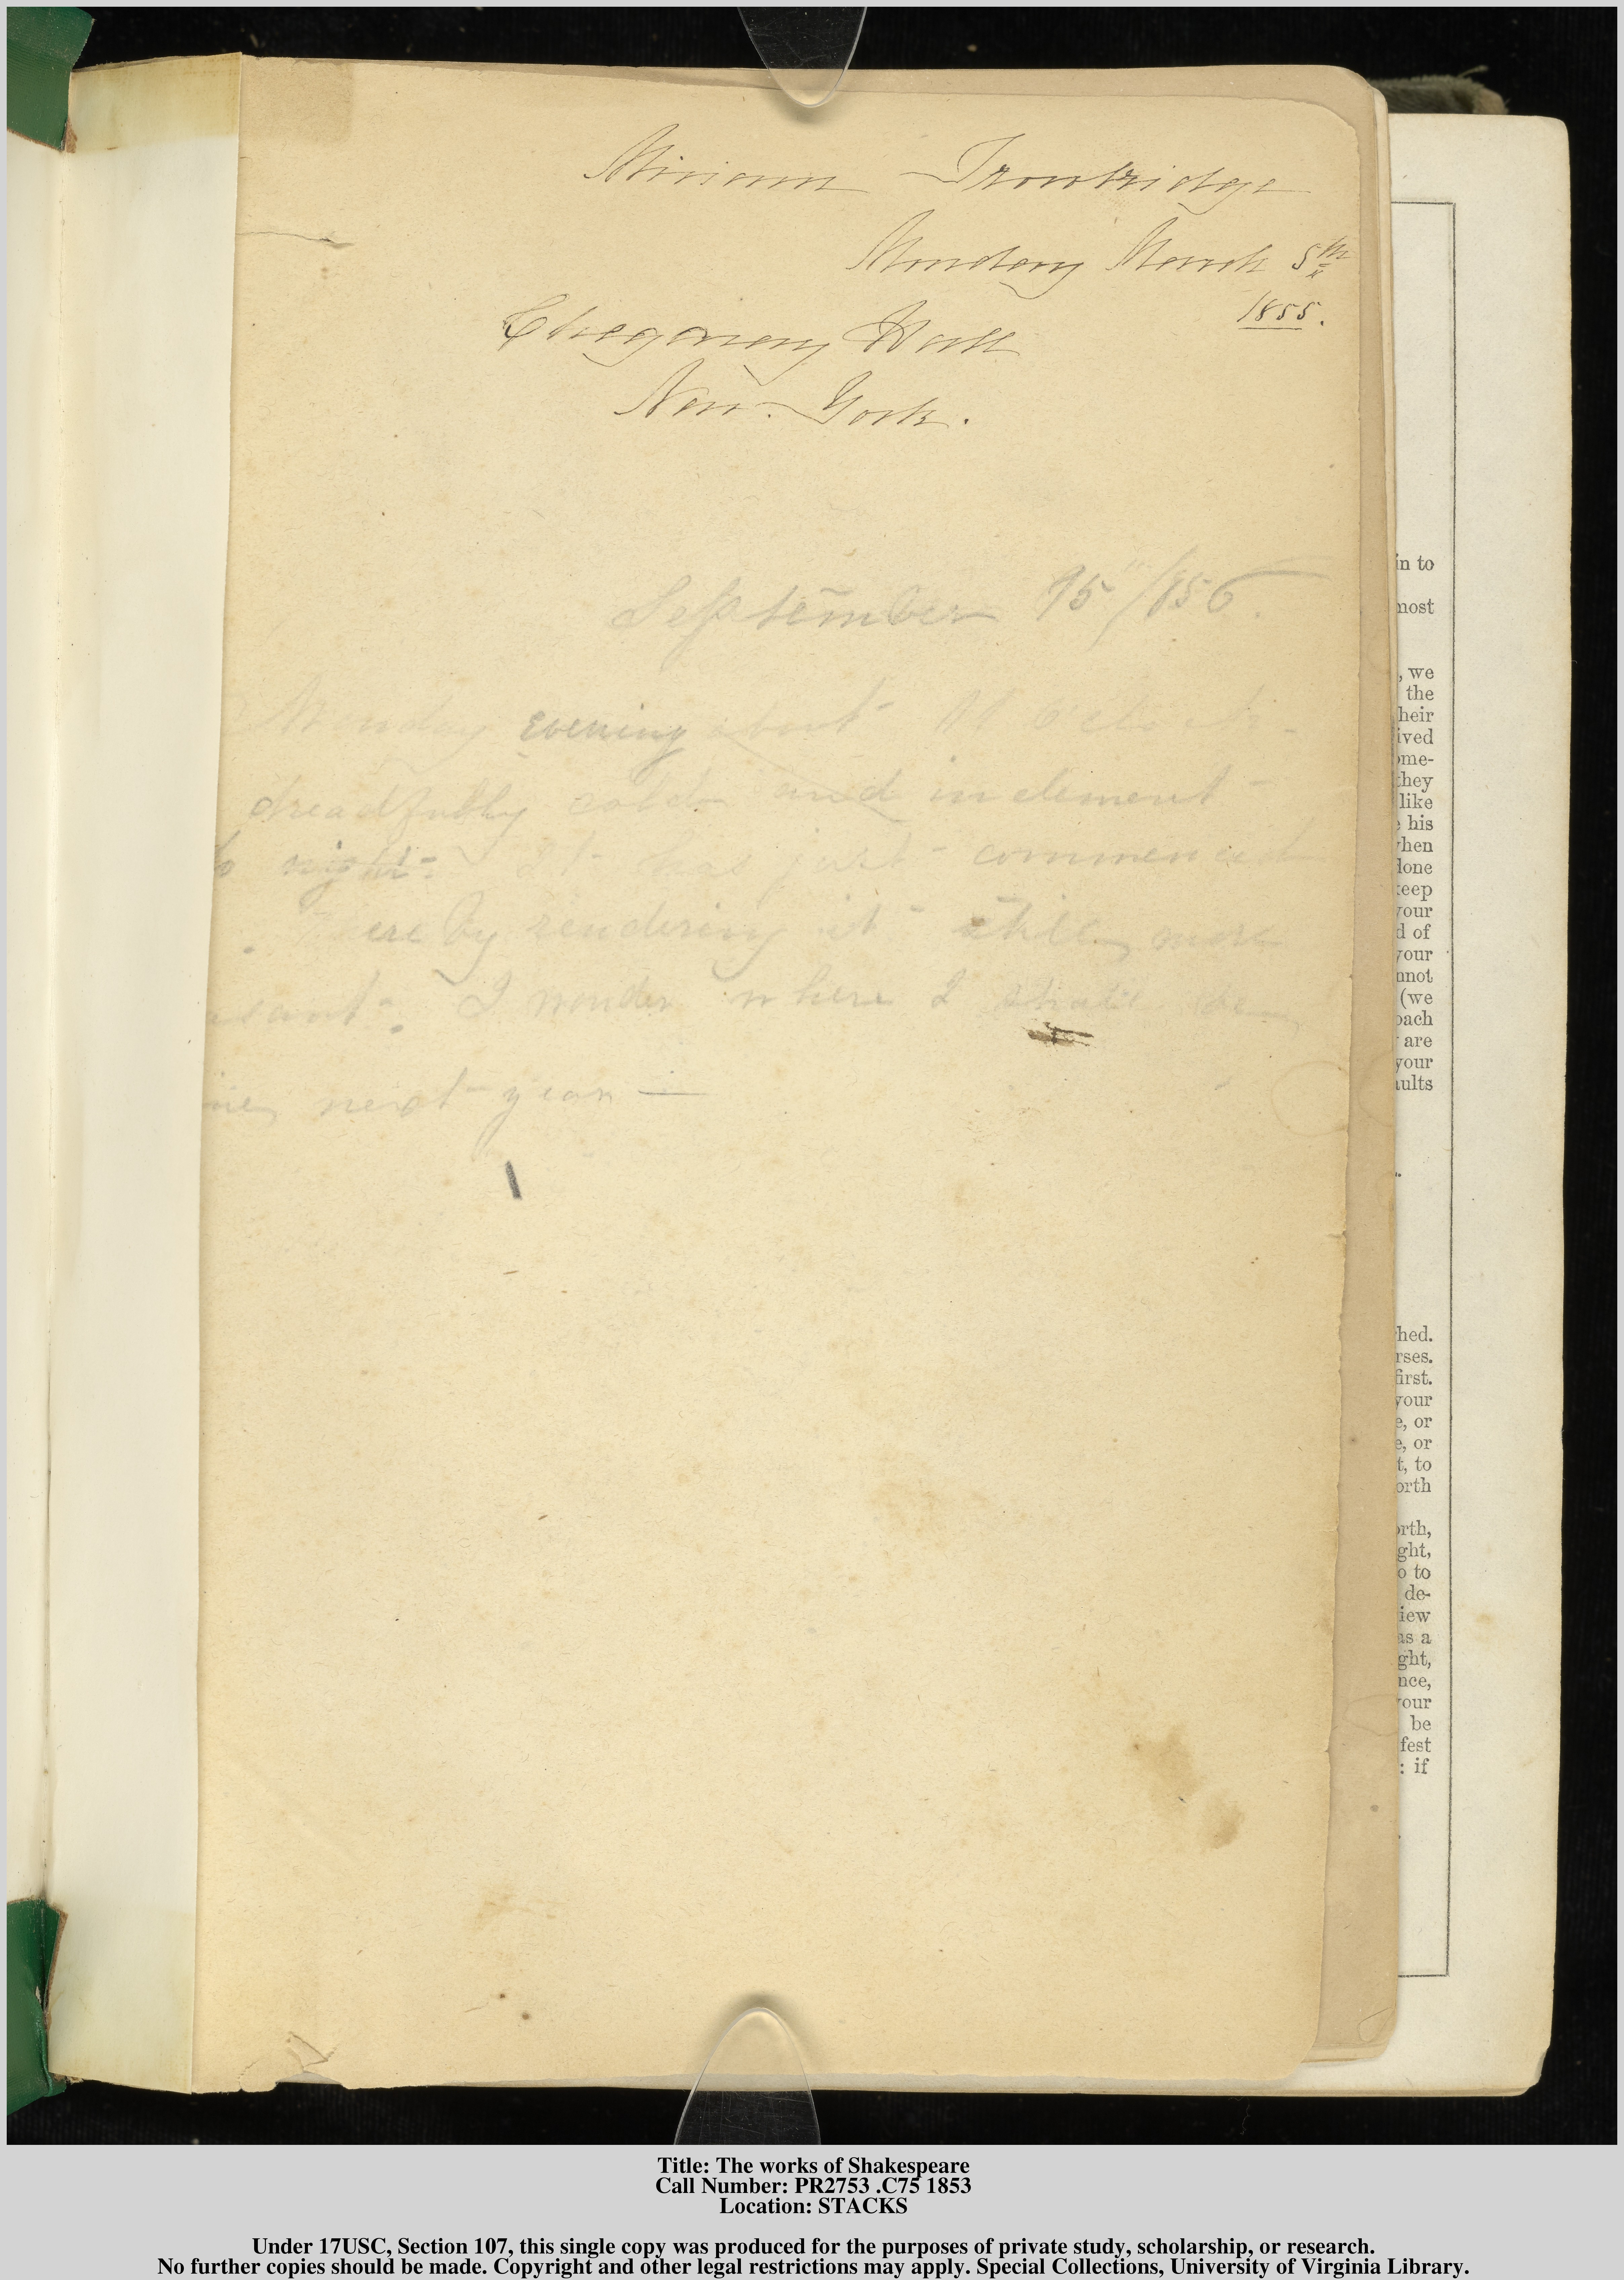 Miriam Trowbridge
Monday March 5th
1855.
Chegaray Hall
New-York.
September 15/156.
Monday evening about o'clock-
dreadfully cold and inclement-
to night- It has just- commenced
. thereby rendering it- still more
asant-. I wonder where I shall be
next-year —
in to
most
, we
the
heir
ived
ome-
they
like
his
when
done
keep
your
d of
your
nnot
(we
oach
are
your
aults
hed.
rses.
first.
your
e, or
e, or
t, to
orth
orth,
ght,
o to
de-
iew
as a
ght,
nce,
your
be
fest
: if
Title: The works of Shakespeare
Call Number: PR2753 .C75 1853
Location: STACKS
Under 17USC, Section 107, this single copy was produced for the purposes of private study, scholarship, or research.
No further copies should be made. Copyright and other legal restrictions may apply. Special Collections, University of Virginia Library.